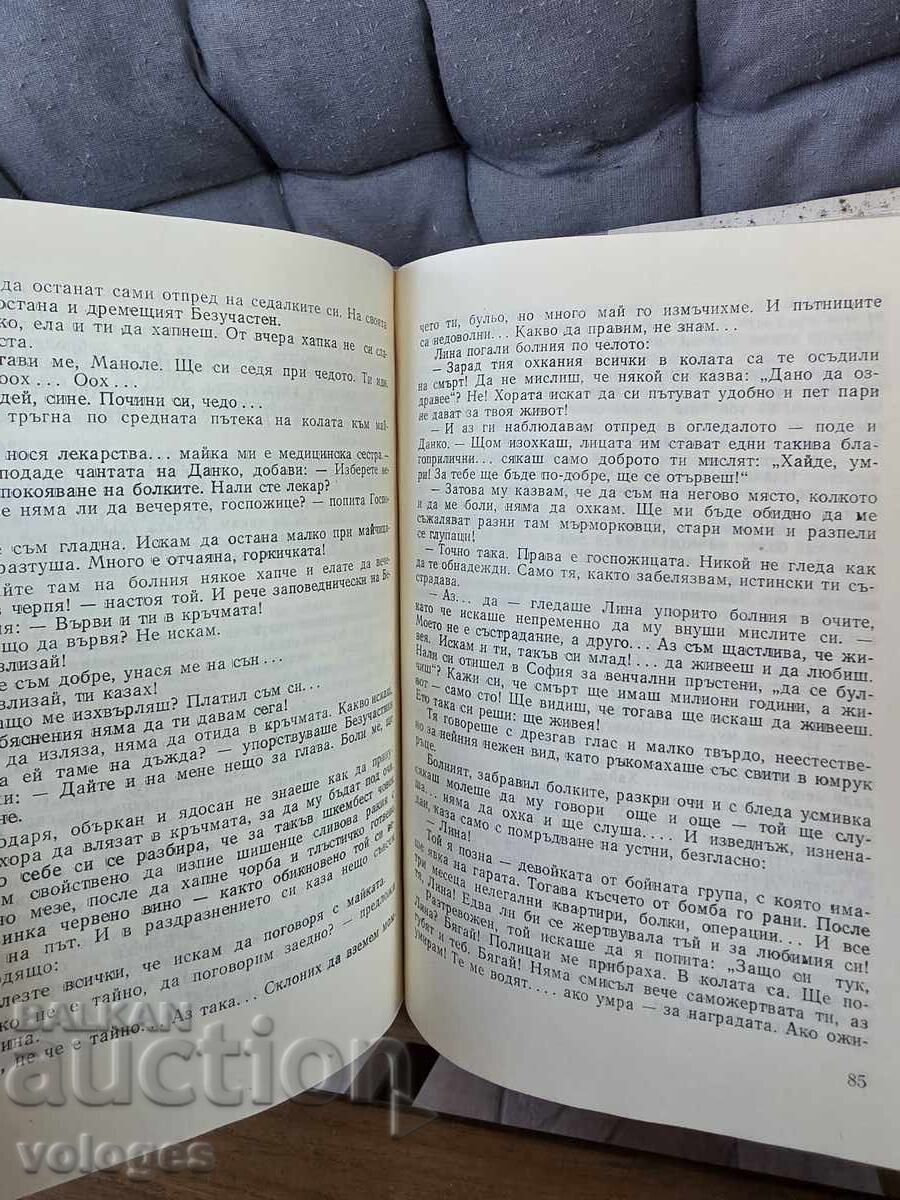 да останат сами отпред на седалките си. На своята
остана и дремещият Безучастен.
ко, ела и ти да хапнеш. От вчера хапка не си сла-
ста.
тави ме, Маноле. Ще си седя при чедото. Ти иди.
оох... Оох...
дей, сине. Почини си, чедо...
тръгна по средната пътека на колата към май-
нося лекарства... майка ми е медицинска сестра.—
подаде чантата на Данко, добави: — Изберете не-
покояване на болките. Нали сте лекар?
е няма ли да вечеряте, госпожице? — попита Госпо-
е съм гладна. Искам да остана малко при майчица-
разтуша. Много е отчаяна, горкичката!
айте там на болния някое хапче и елате да вече-
з черпя! — настоя той. И рече заповеднически на Бе-
ия: — Върви и ти в кръчмата!
що да вървя? Не искам.
влизай!
е съм добре, унася ме на сън...
влизай, ти казах!
ащо ме изхвърляш? Платил съм си...
бяснения няма да ти давам сега!
да изляза, няма да отида в кръчмата. Какво искаш,
а ей таме на дъжда? — упорствуваше Безучастния
ки: — Дайте и на мене нещо за глава. Боли ме, ще
не.
одаря, объркан и ядосан не знаеше как да прину-
хора да влязат в кръчмата, за да му бъдат под око.
о себе си се разбира, че за такъв шкембест човек
м свойствено да изпие шишенце сливова ракия с
но мезе, после да хапне чорба и тлъстичко готвено
винка червено вино — както обикновено той си
на път. И в раздразнението си каза нещо съвсем
одящо:
лезте всички, че искам да поговоря с майката.
ко не е тайно, да поговорим заедно? — предложи
ина.
, не че е тайно... Аз така... Склоних да вземем мом-
чето ти, бульо, но много май го измъчихме. И пътниците
са недоволни... Какво да правим, не знам...
Лина погали болния по челото:
— Зарад тия охкания всички в колата са те осъдили
на смърт! Да не мислиш, че някой си казва: „Дано да оз-
дравее“? Не! Хората искат да си пътуват удобно и пет пари
не дават за твоя живот!
— И аз ги наблюдавам отпред в огледалото — поде и
Данко. — Щом изохкаш, лицата им стават едни такива бла-
гоприлични... сякаш само доброто ти мислят: „Хайде, ум-
ри! За тебе ще бъде по-добре, ще се отървеш!“
— Затова му казвам, че да съм на негово място, колкото
и да ме боли, няма да охкам. Ще ми бъде обидно да ме
съжаляват разни там мърморковци, стари моми и разпели
се глупаци!
— Точно така. Права е госпожицата. Никой не гледа как
да те обнадежди. Само тя, както забелязвам, истински ти съ-
страдава.
— Аз... да — гледаше Лина упорито болния в очите,
като че искаше непременно да му внуши мислите си. —
Моето не е състрадание, а друго... Аз съм щастлива, че жи-
вея. Искам и ти, такъв си млад! — да живееш и да любиш.
Нали си отишел в София за венчални пръстени, „да се бул-
чиш“? Кажи си, че смърт ще имаш милиони години, а жи-
вот — само сто! Ще видиш, че тогава ще искаш да живееш.
Ето така си реши: ще живея!
Тя говореше с дрезгав глас и малко твърдо, неестестве-
но за нейния нежен вид, като ръкомахаше със свити в юмрук
ръце.
Болният, забравил болките, разкри очи и с бледа усмивка
сякаш молеше да му говори още и още — той ще слу-
ша... няма да охка и ще слуша.... И изведнъж, изнена-
дан, каза само с помръдване на устни, безгласно:
— Лина!
Той я позна — девойката от бойната група, с която има-
ше явка на гарата. Тогава късчето от бомба го рани. После
три месеца нелегални квартири, болки, операции... И все
тя, Лина! Едва ли би се жертвувала тъй и за любимия си!
Разтревожен, той искаше да я попита: „Защо си тук,
Лина? Бягай! Полицаи ме прибраха. В колата са. Ще по-
губят и теб. Бягай! Няма смисъл вече саможертвата ти, аз
умирам! Те ме водят.... ако умра — за наградата. Ако ожи-
85
BALKAN
auction
vologes